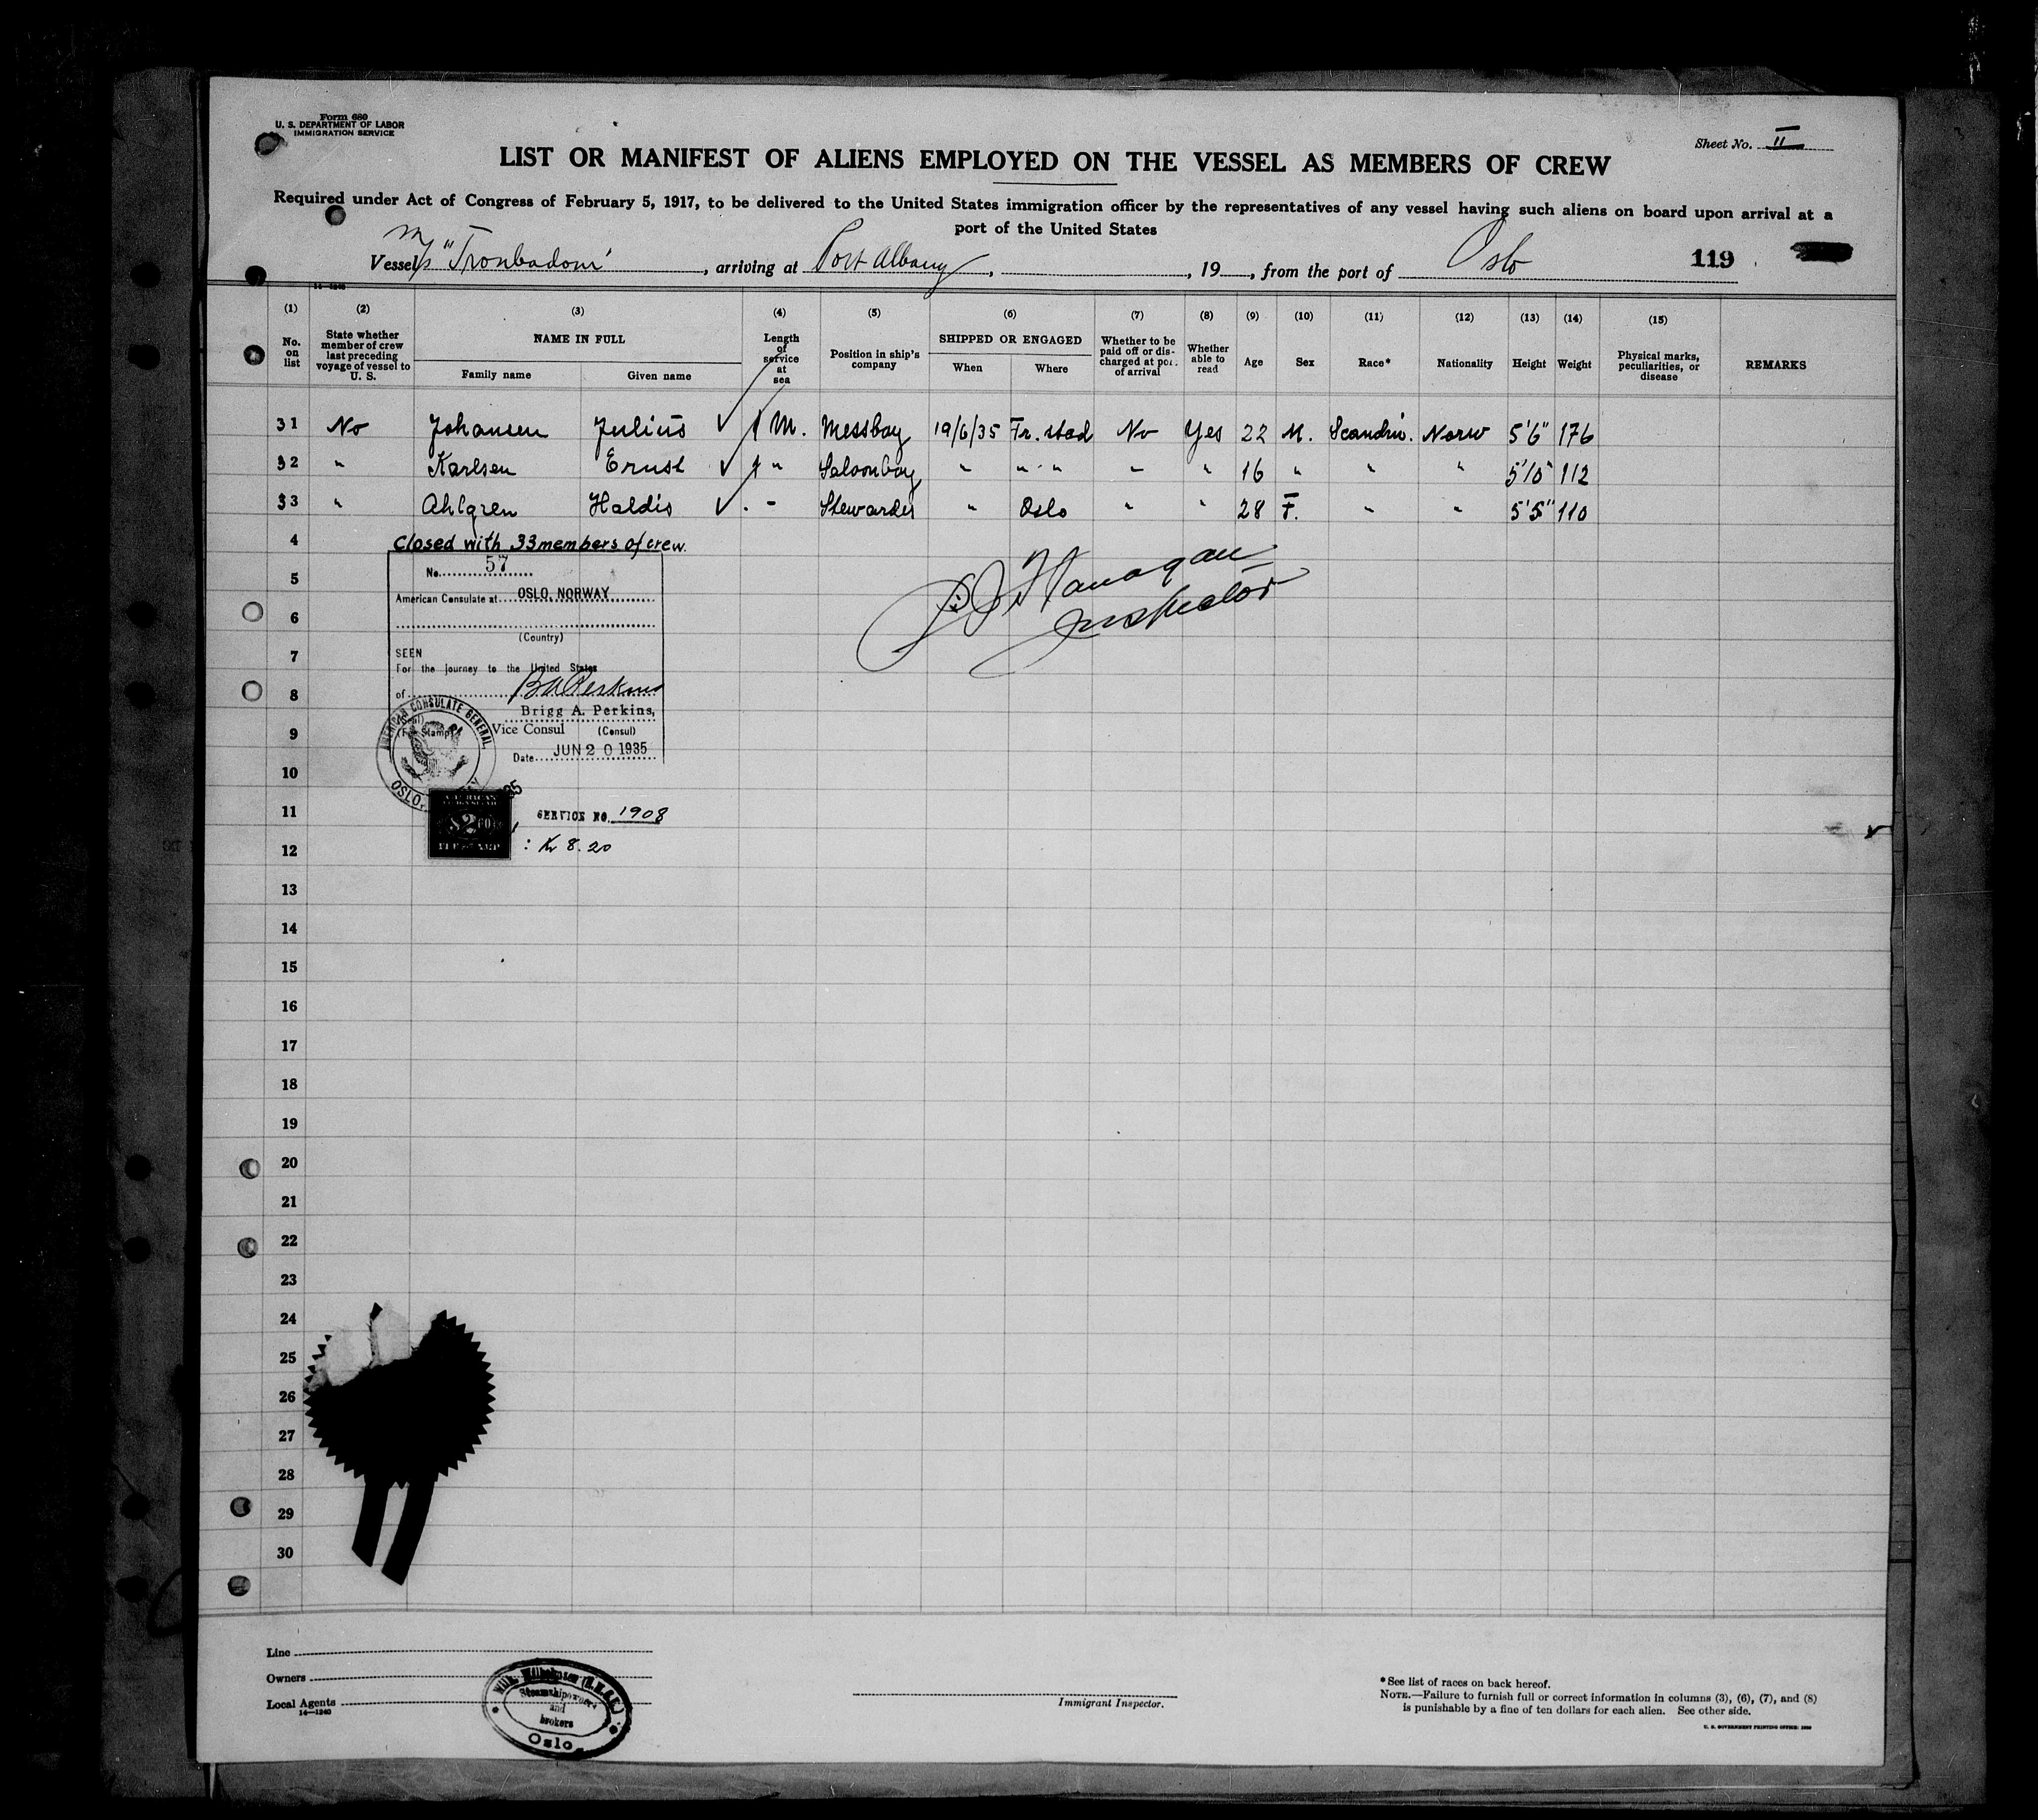 Form 680
U. S. DEPARTMENT OF LABOR
IMMIGRATION SERVICE
Sheet No. II
LIST OR MANIFEST OF ALIENS EMPLOYED ON THE VESSEL AS MEMBERS OF CREW
Required under Act of Congress of February 5, 1917, to be delivered to the United States immigration officer by the representatives of any vessel having such aliens on board upon arrival at a
port of the United States
Vessel M/S "Troubadour", arriving at Port Albany, , 19 , from the port of Oslo 119
(1) (2) (3) (4) (5) (6) (7) (8) (9) (10) (11) (12) (13) (14) (15)
No. on list
State whether member of crew last preceding voyage of vessel to U. S.
NAME IN FULL
Family name Given name
Length of service at sea
Position in ship's company
SHIPPED OR ENGAGED
When Where
Whether to be paid off or discharged at port of arrival
Whether able to read
Age Sex Race* Nationality Height Weight
Physical marks, peculiarities, or disease
REMARKS
31 No Johansen Julius ✓ 1 M. Messboy 19/6/35 Fr. stad No Yes 22 M. Scandin. Norw 5'6" 176
32 " Karlsen Ernst ✓ 1 " Saloonboy " " " " " 16 " " " 5'10" 112
33 " Ahlgren Haldis ✓ . - Stewardes " Oslo " " 28 F. " " 5'5" 110
4 Closed with 33 members of crew.
5
6
7
8
9
10
11
12
13
14
15
16
17
18
19
20
21
22
23
24
25
26
27
28
29
30
No. 57
American Consulate at OSLO, NORWAY
(Country)
SEEN
For the journey to the United States
of B A Perkins
Brigg A. Perkins,
Vice Consul (Consul)
Date JUN 20 1935
AMERICAN CONSULATE GENERAL
OSLO,
SERVICE NO. 1908
: Kr 8.20
Flanagan
Inspector
Line
Owners
Local Agents
14—1240
Steamshipowners
and
brokers
Oslo
Immigrant Inspector.
*See list of races on back hereof.
NOTE.—Failure to furnish full or correct information in columns (3), (6), (7), and (8)
is punishable by a fine of ten dollars for each alien. See other side.
U. S. GOVERNMENT PRINTING OFFICE: